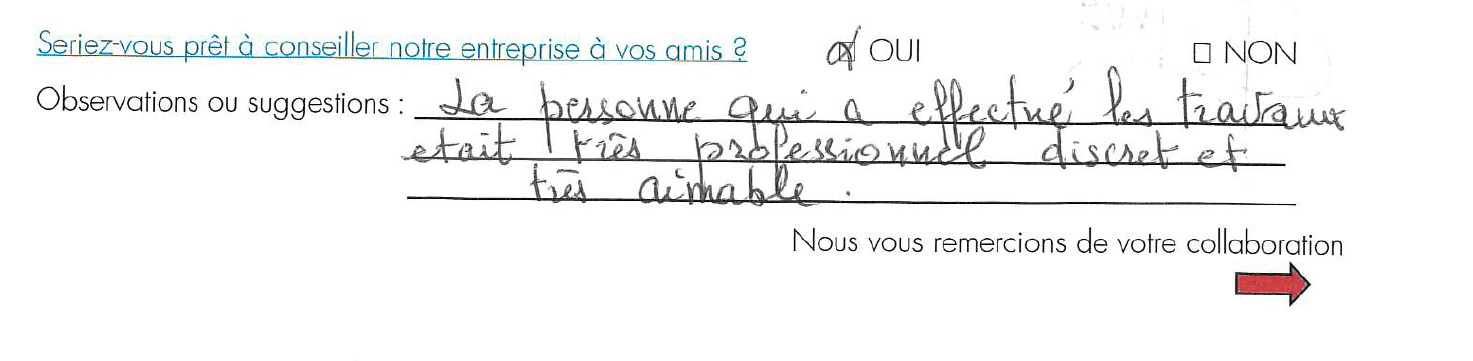 Seriez-vous prêt à conseiller notre entreprise à vos amis ? ☒ OUI ☐ NON
Observations ou suggestions : La personne qui a effectué les travaux
etait très professionnel discret et
très aimable .
Nous vous remercions de votre collaboration